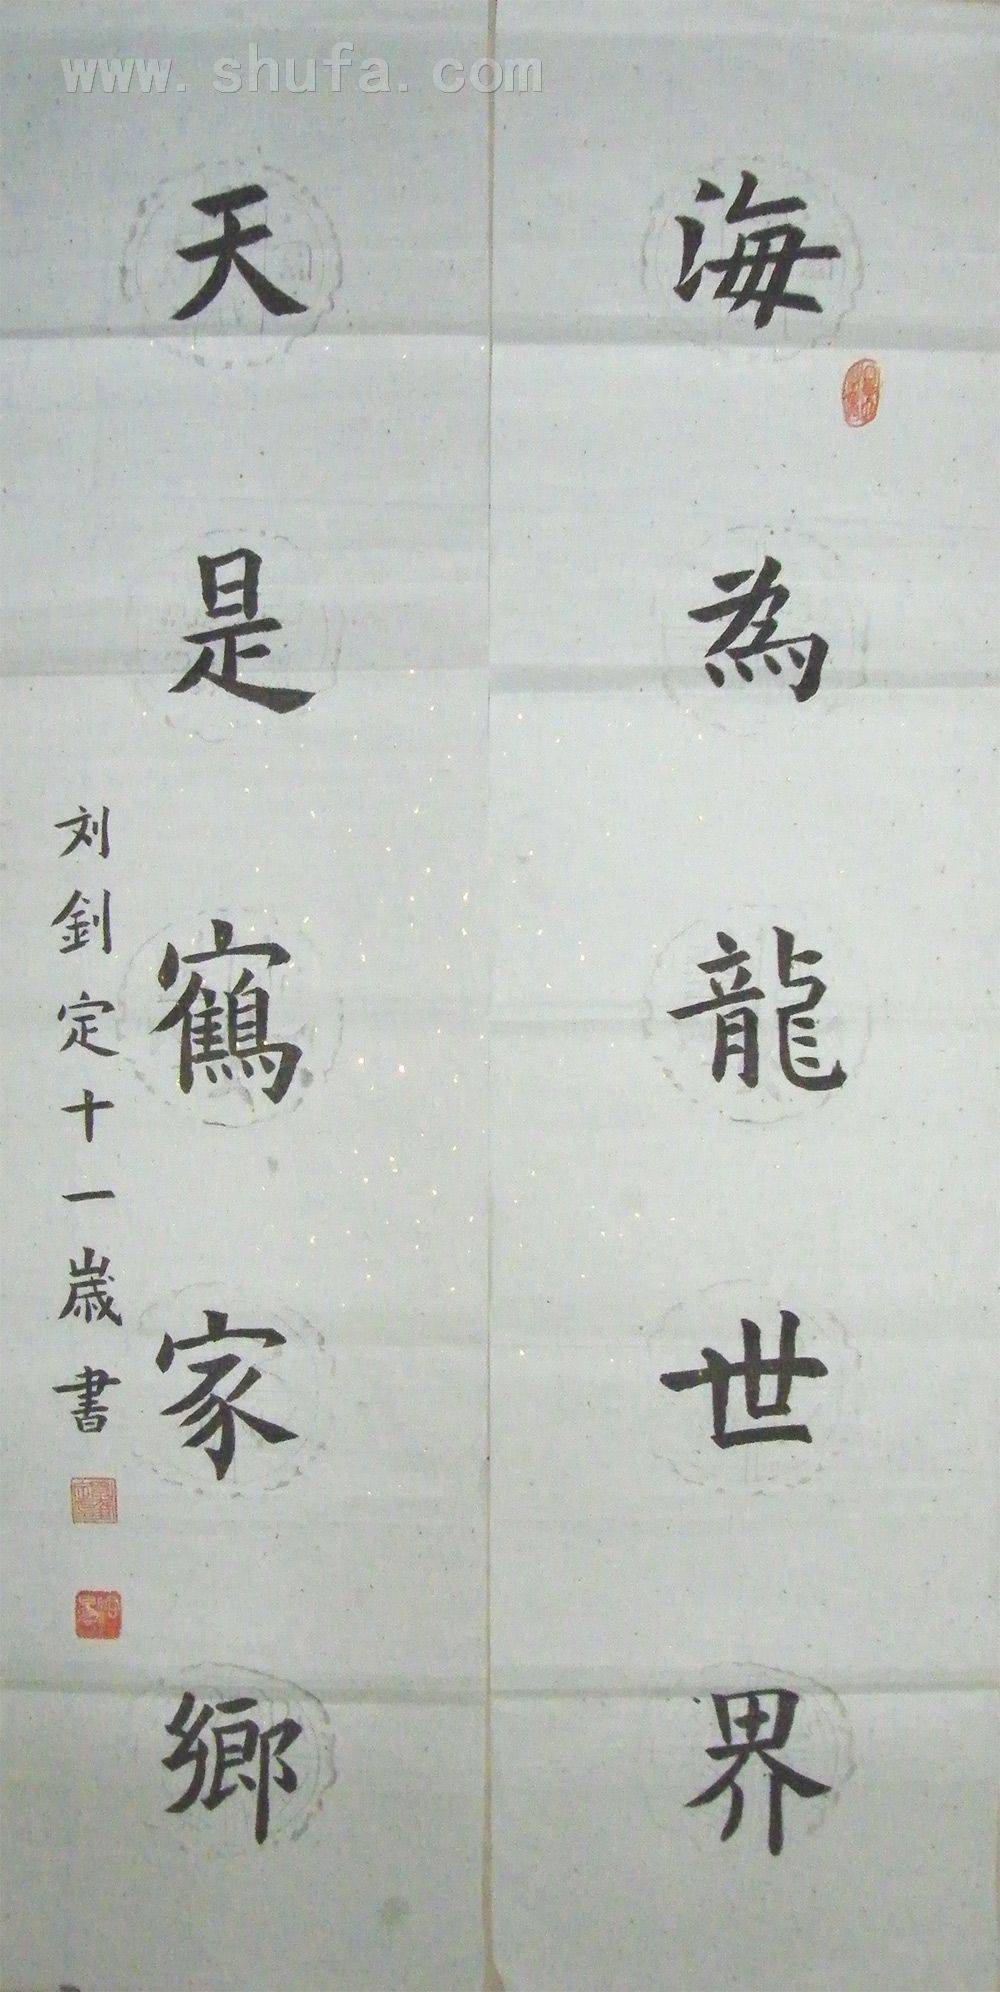 www.shufa.com
海為龍世界
天是鶴家鄉
刘釗定十一歲書